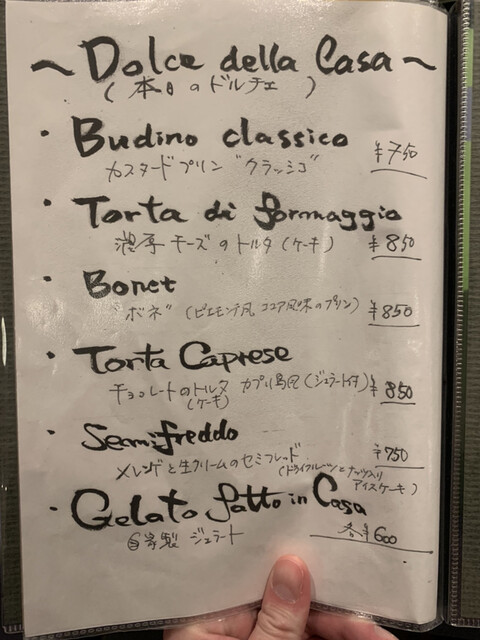 ~ Dolce della Casa ~
( 本日のドルチェ )
・ Budino classico
カスタードプリン "クラッシコ" ¥750
・ Torta di formaggio
濃厚チーズのトルタ (ケーキ) ¥850
・ Bonet
"ボネ" (ピエモンテ風 ココア風味のプリン) ¥850
・ Torta Caprese
チョコレートのトルタ カプリ島風 (ジェラート付) ¥850
(ケーキ)
・ Semifreddo
¥750
メレンゲと生クリームのセミフレッド
(ドライフルーツとナッツ入り
アイスケーキ)
・ Gelato fatto in Casa
自家製 ジェラート 各¥600